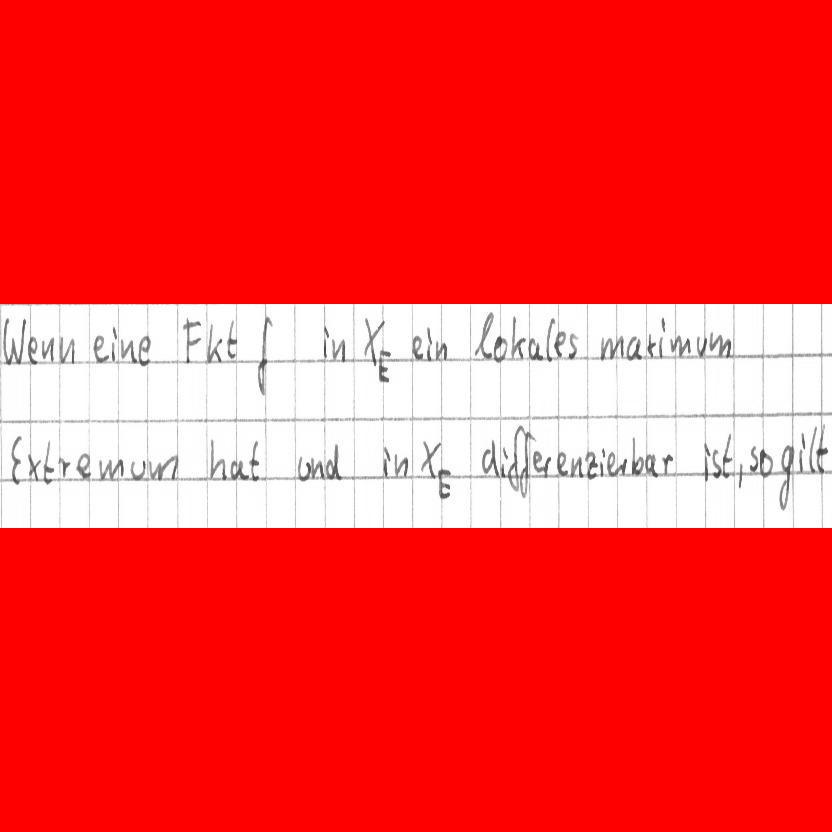 Wenn eine Fkt f in X_E ein lokales maximum
Extremum hat und in X_E differenzierbar ist, so gilt